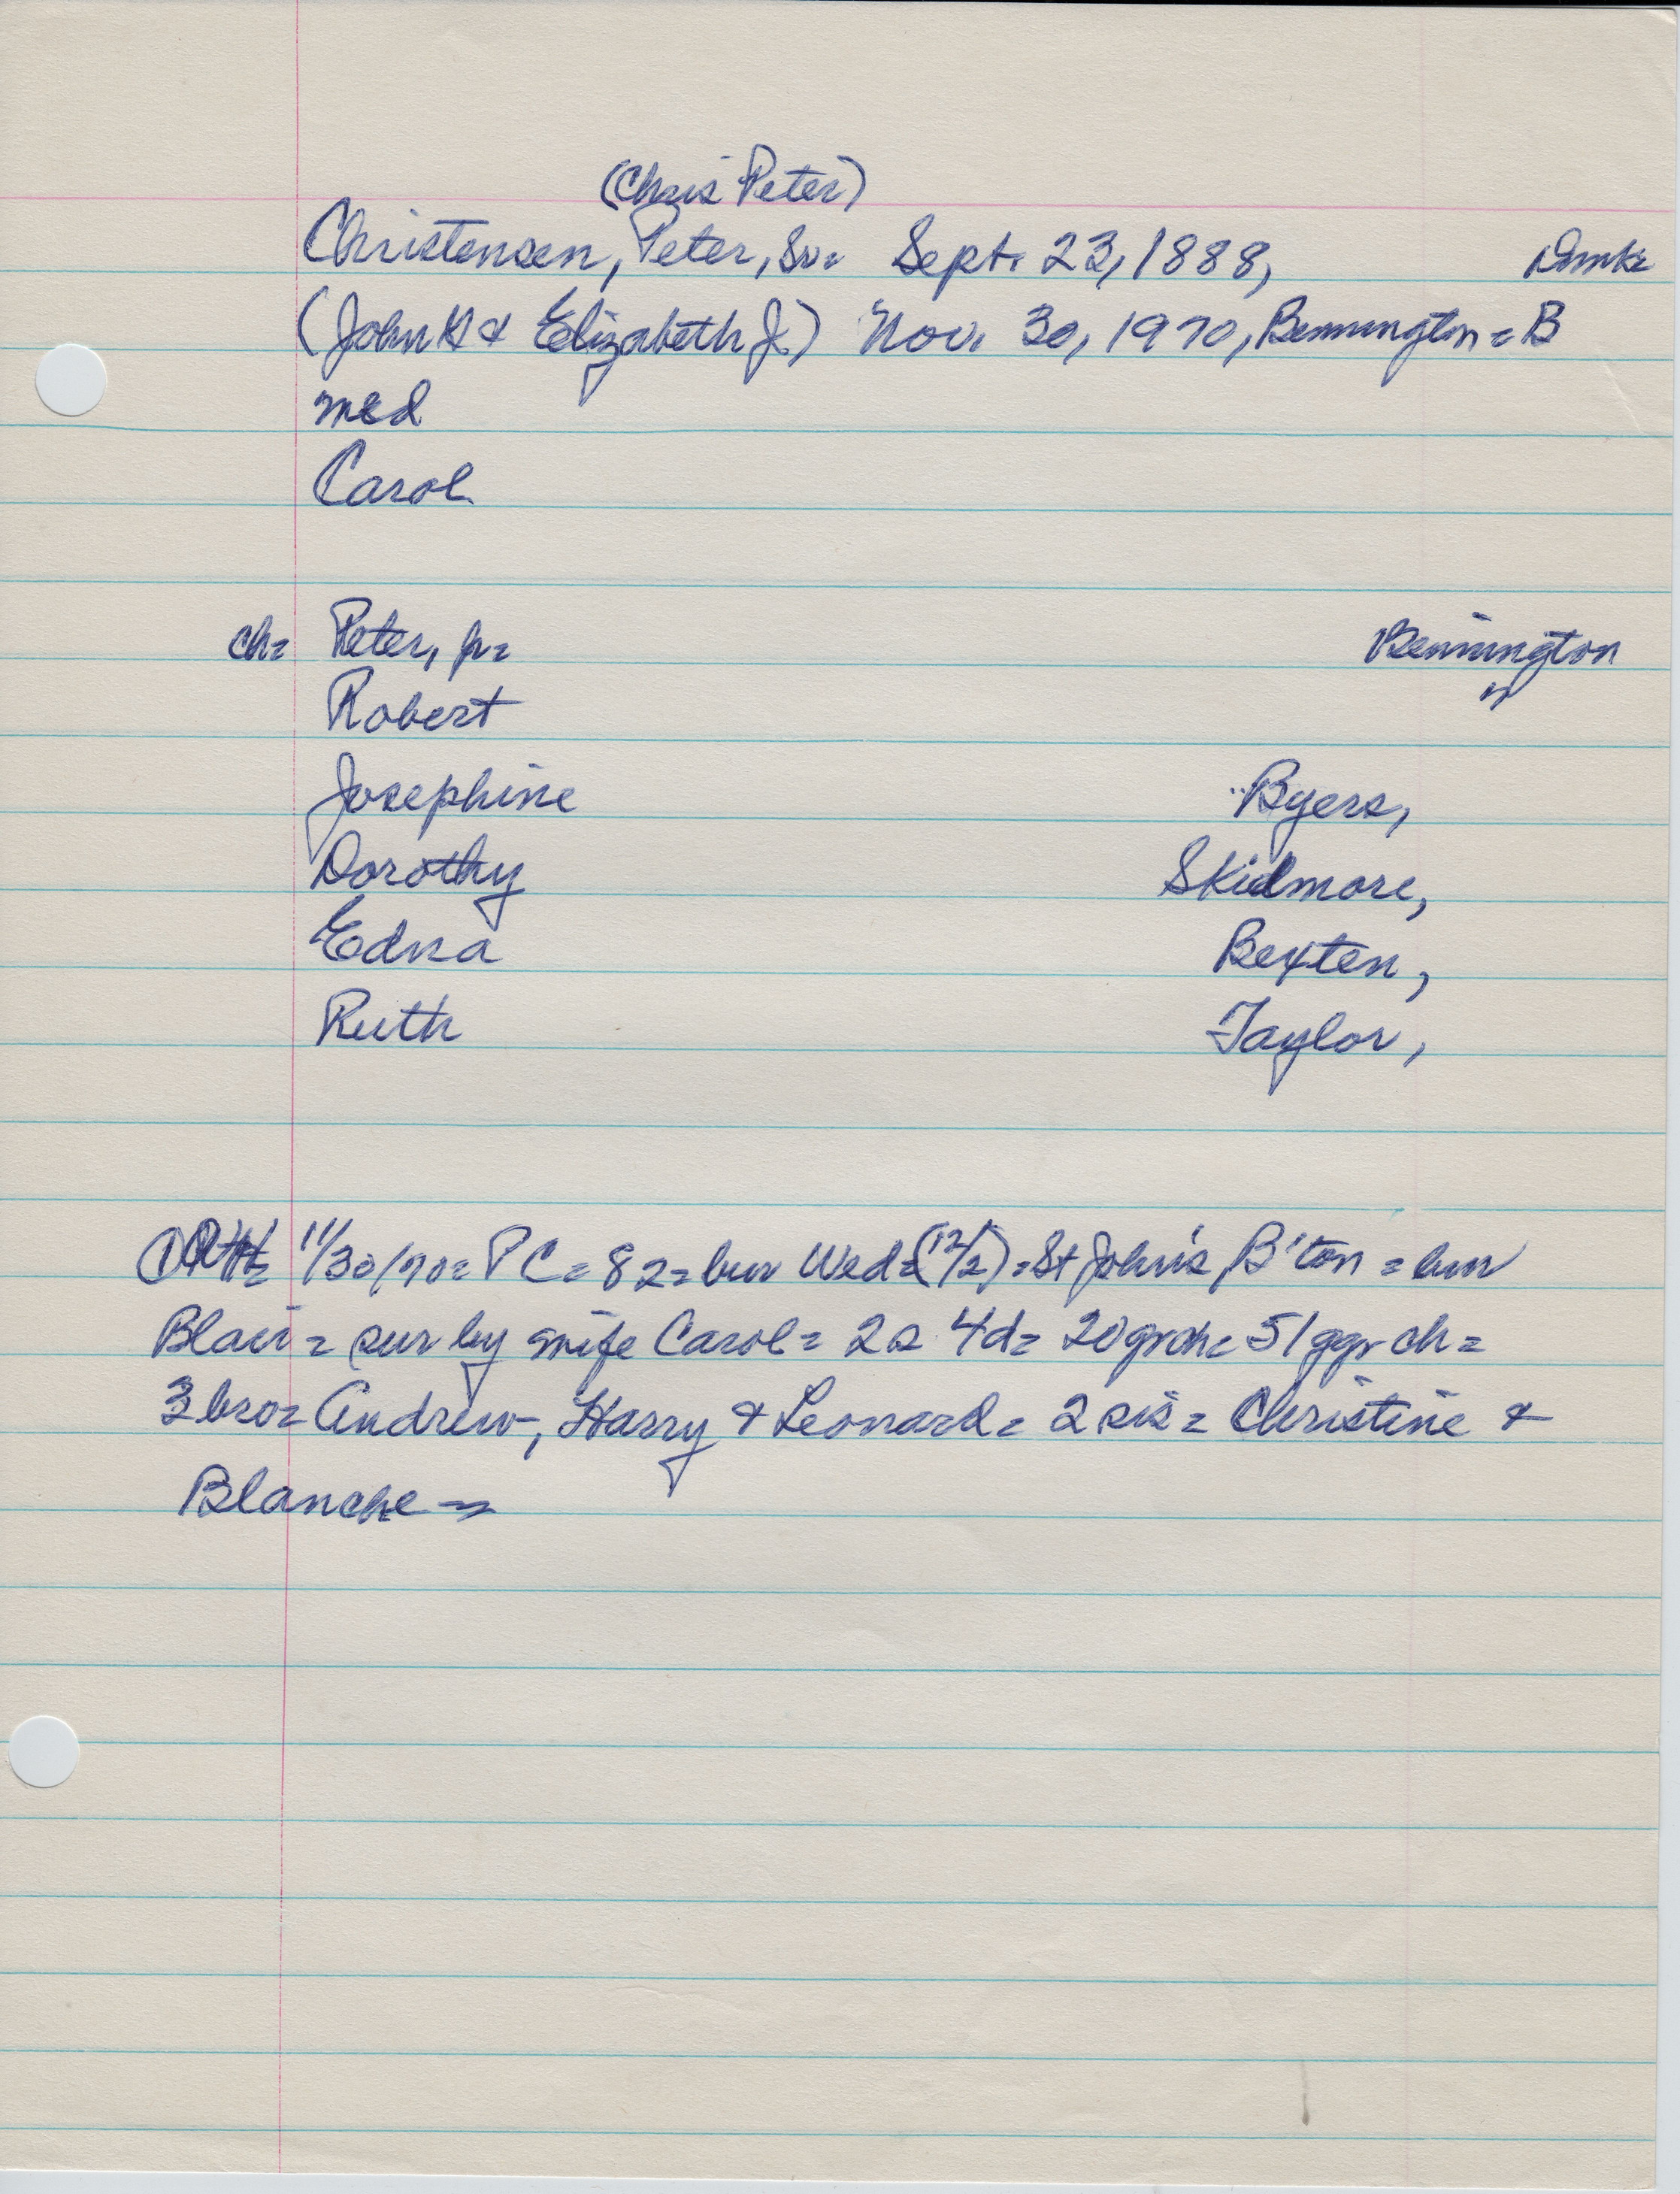 (Chris Peter)
Christensen, Peter, Sr= Sept. 23, 1888, Dmk=
(John & Elizabeth J.) Nov. 30, 1970, Bennington = B
med
Carol
ch= Peter, jr= Bennington
Robert "
Josephine Byers,
Dorothy Skidmore,
Edna Bexten,
Ruth Taylor,
11/30/70= PC= 82= bur Wed=(12/2)=St John's, B'ton = bur
Blair= sur by wife Carol= 2s 4d= 20grch= 51ggr ch=
3bro= Andrew, Harry & Leonard= 2 sis= Christine &
Blanche=